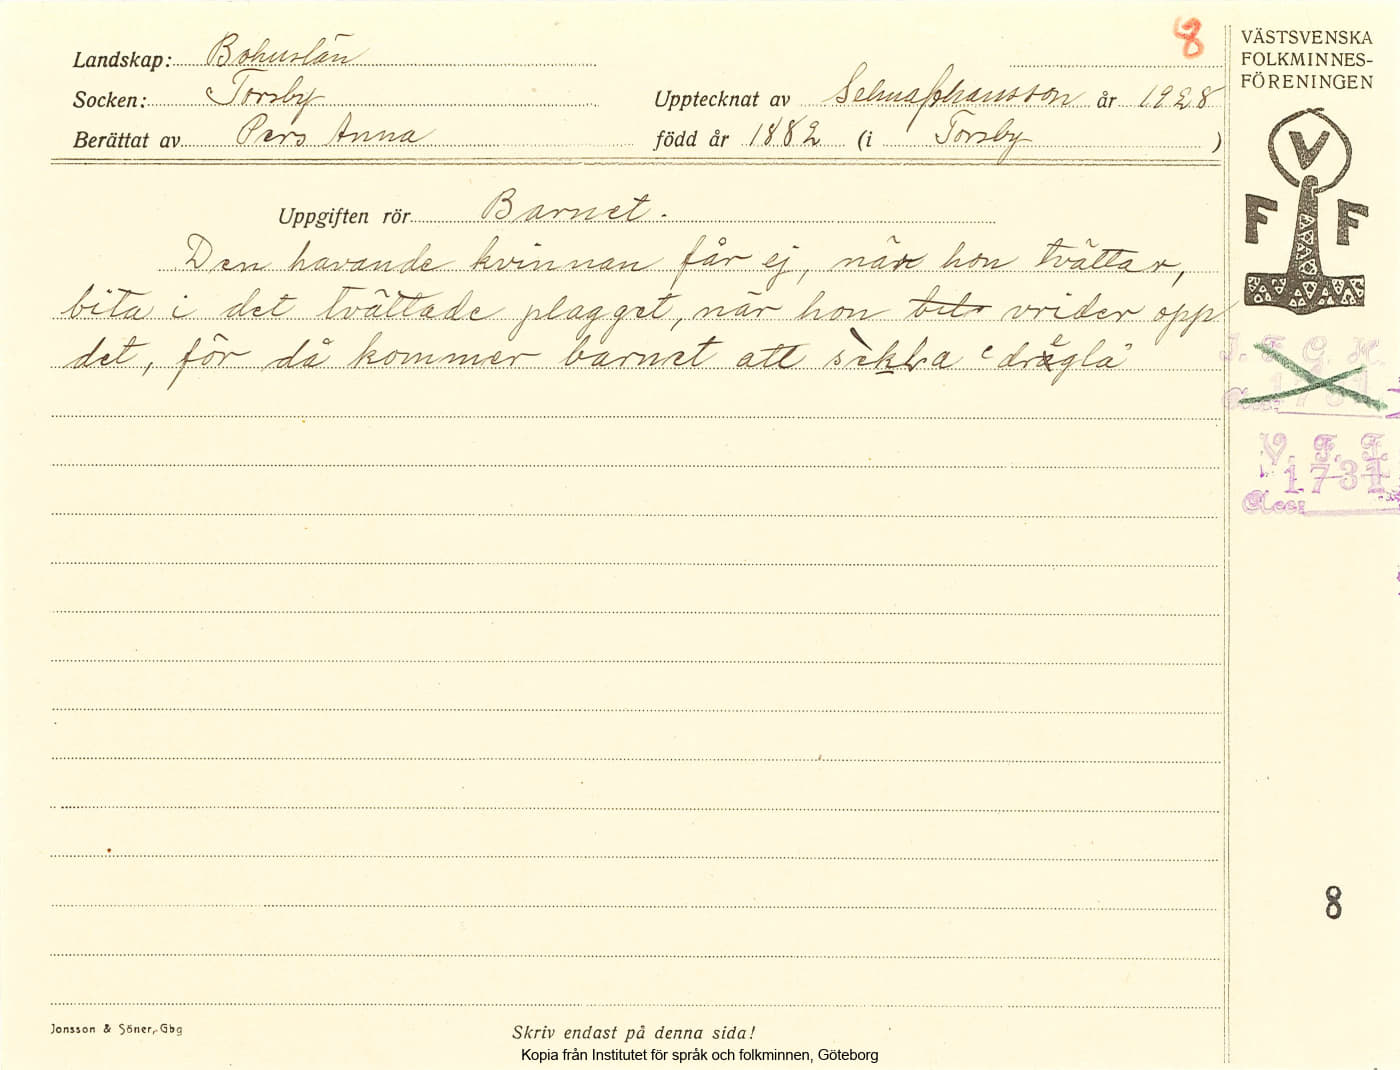 8
Landskap: Bohuslän
Socken: Torsby
Upptecknat av Selma Johansson år 1928
Berättat av Pers Anna
född år 1882 (i Torsby )
VÄSTSVENSKA
FOLKMINNES-
FÖRENINGEN
V
F F
Uppgiften rör Barnet.
Den havande kvinnan får ej, när hon tvättar,
bita i det tvättade plagget, när hon vrider opp
det, för då kommer barnet att sikla drägla
I. F. G. H.
V. F. F.
1731
Acc:
8
Jonsson & Söner, Gbg
Skriv endast på denna sida!
Kopia från Institutet för språk och folkminnen, Göteborg